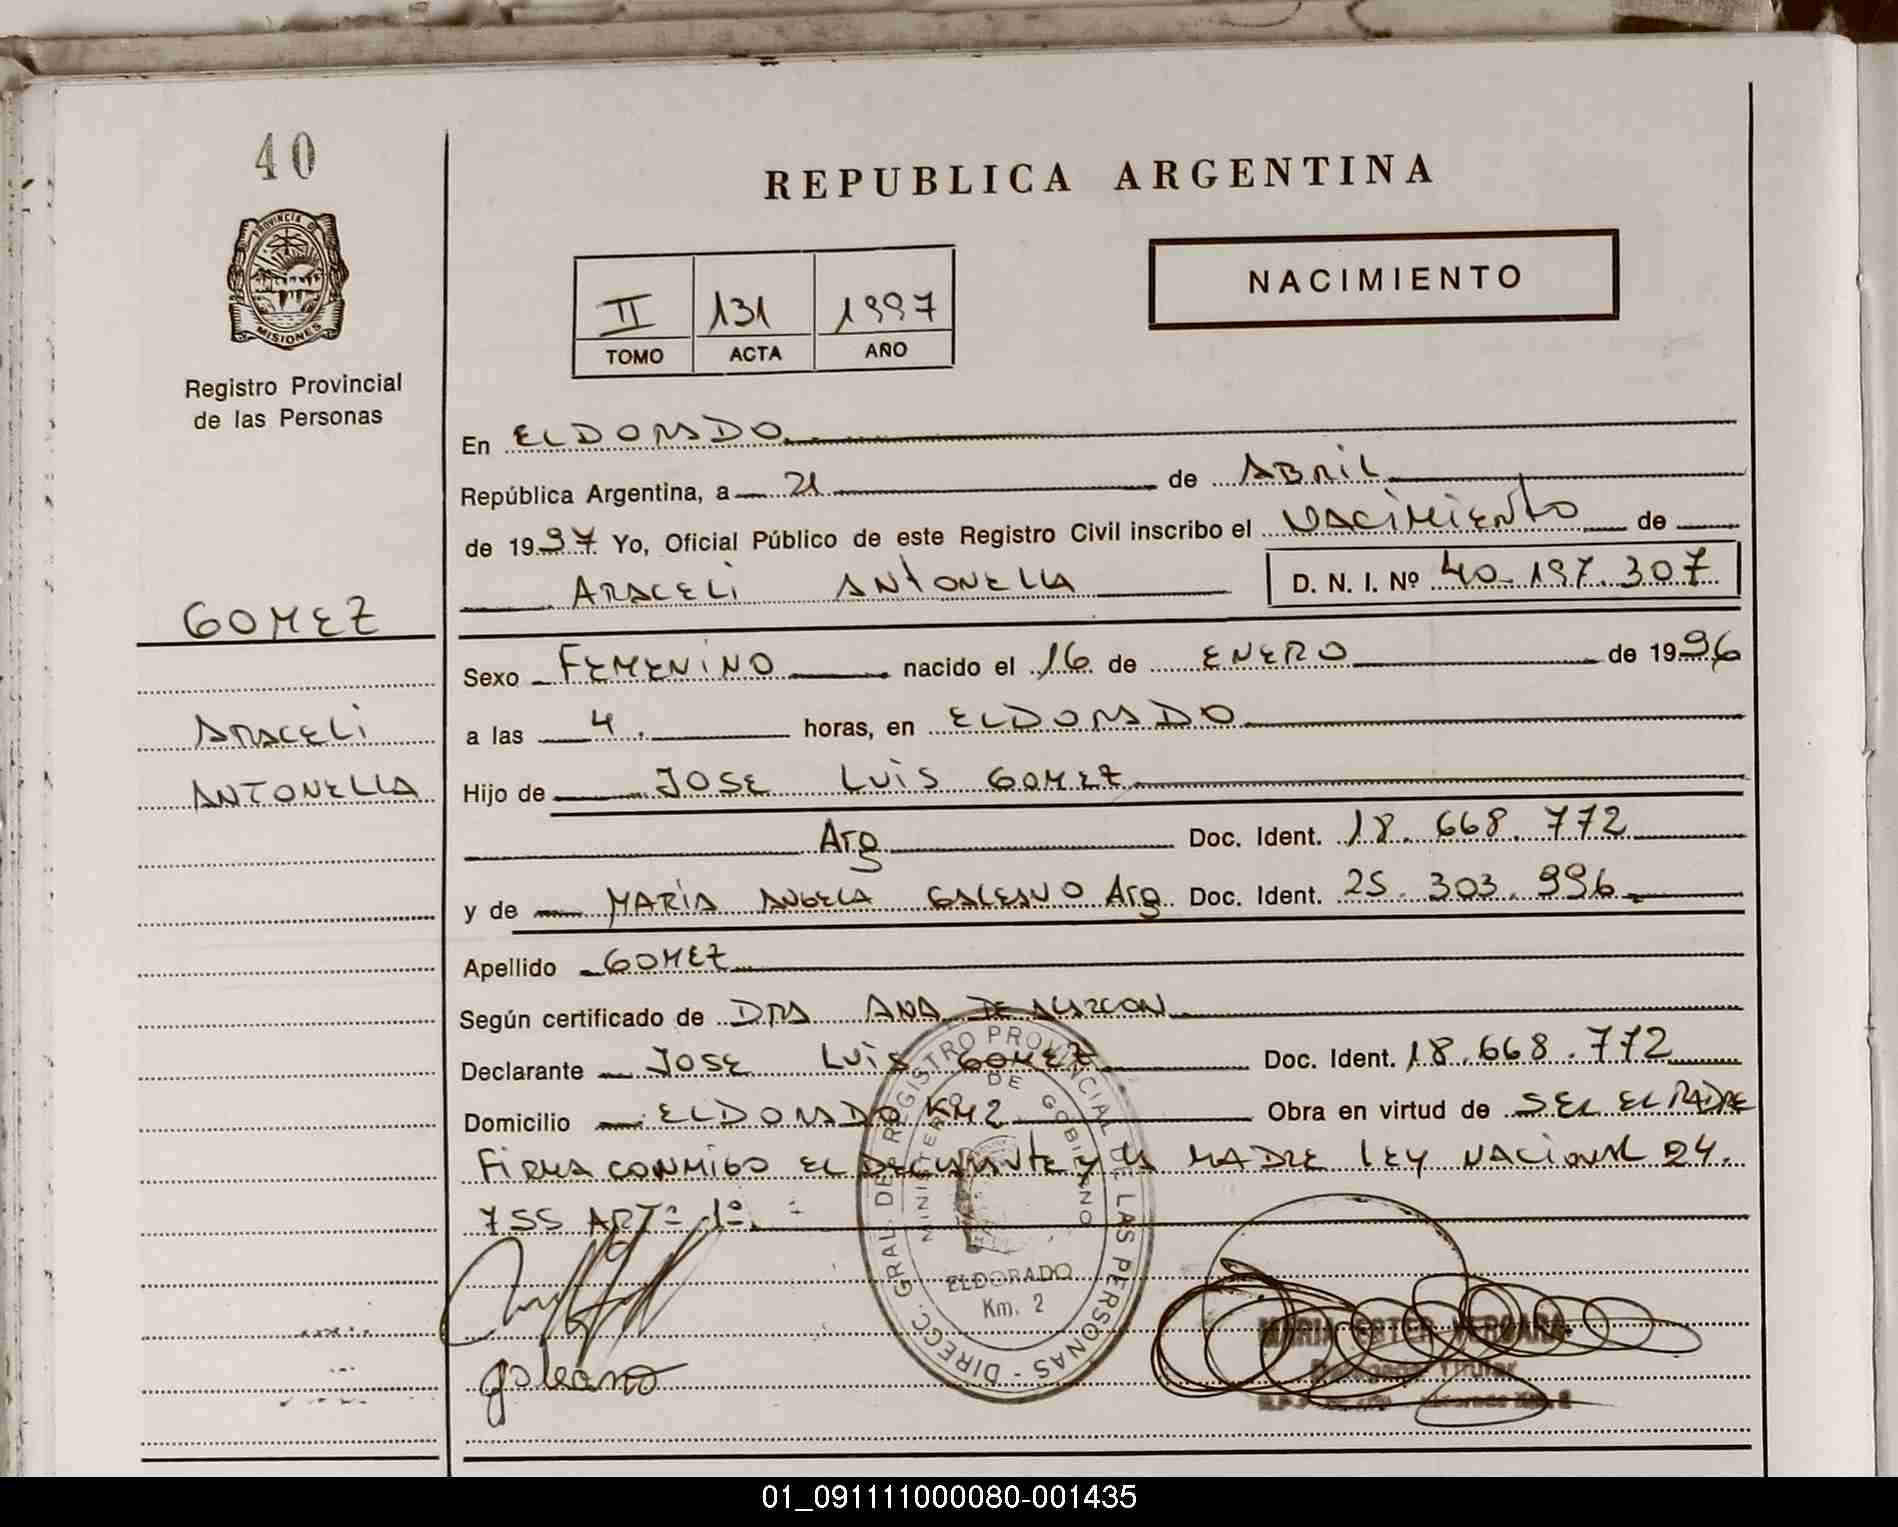 40
PROVINCIA DE
MISIONES
Registro Provincial
de las Personas
GOMEZ
ARACELI
ANTONELLA
REPUBLICA ARGENTINA
NACIMIENTO
II 131 1997
TOMO ACTA AÑO
En ELDORADO
República Argentina, a 21 de ABRIL
de 1997 Yo, Oficial Público de este Registro Civil inscribo el NACIMIENTO de
ARACELI ANTONELLA D. N. I. Nº 40.197.307
Sexo FEMENINO nacido el 16 de ENERO de 1996
a las 4. horas, en ELDORADO
Hijo de JOSE LUIS GOMEZ
Arg Doc. Ident. 18.668.772
y de MARIA ANGELA GALEANO Arg Doc. Ident. 25.303.996
Apellido GOMEZ
Según certificado de DRA ANA DE ALARCON
Declarante JOSE LUIS GOMEZ Doc. Ident. 18.668.772
Domicilio ELDORADO KM 2 Obra en virtud de SER EL PADRE
FIRMA CONMIGO EL DECLARANTE y LA MADRE LEY NACIONAL 24.
755 ARTº 1º.
DIRECC. GRAL. DE REGISTRO PROVINCIAL DE LAS PERSONAS -
MINISTERIO DE GOBIERNO
ELDORADO
Km. 2
galeano
MARIA ESTER VERGARA
Titular
01_091111000080-001435